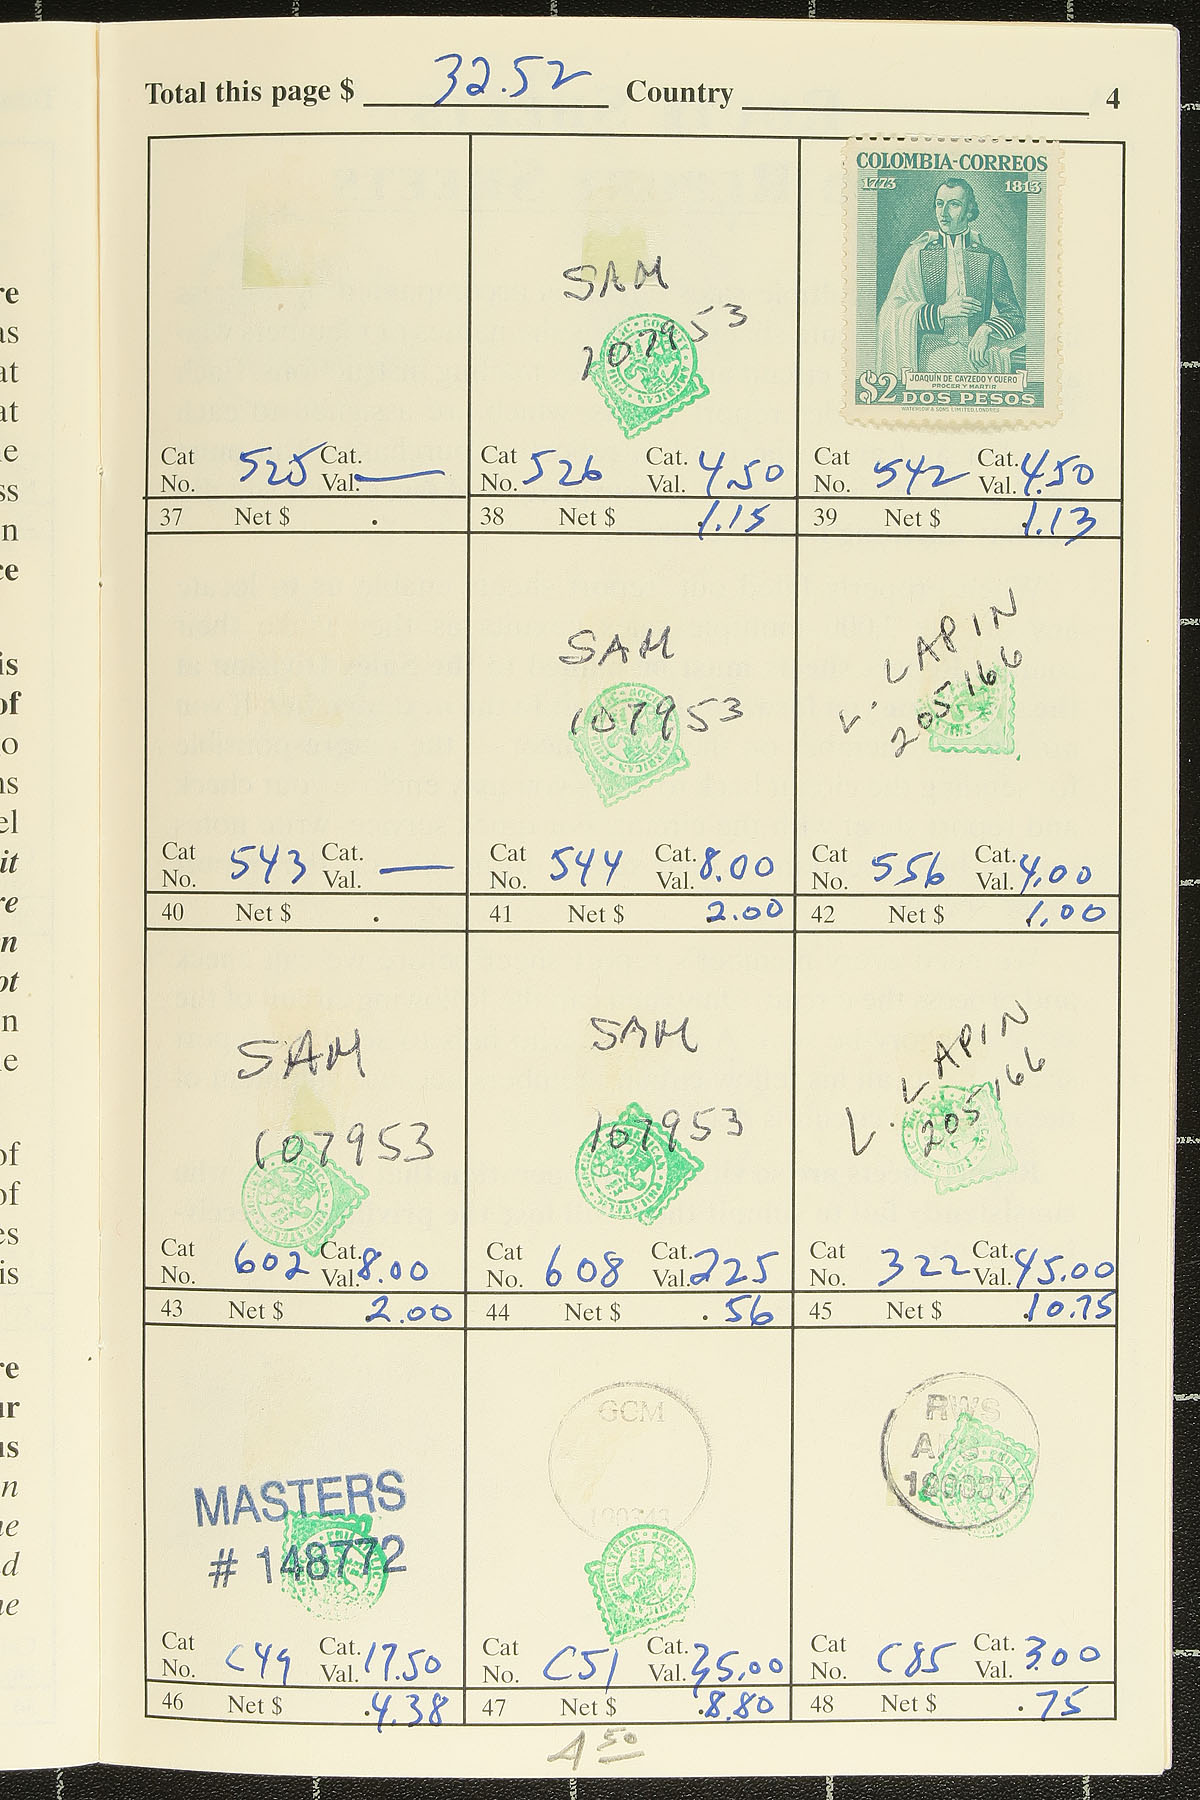 Total this page $ 32.52 Country 4
COLOMBIA-CORREOS
1773 1813
JOAQUÍN DE CAYZEDO Y CUERO
PROCER Y MARTIR
$2 DOS PESOS
WATERLOW & SONS LIMITED, LONDRES
SAM
107953
Cat No. 525 Cat. Val. —
37 Net $ .
Cat No. 526 Cat. Val. 4.50
38 Net $ 1.15
Cat No. 542 Cat. Val. 4.50
39 Net $ 1.13
SAM
107953
L. LAPIN
205166
Cat No. 543 Cat. Val. —
40 Net $ .
Cat No. 544 Cat. Val. 8.00
41 Net $ 2.00
Cat No. 556 Cat. Val. 4.00
42 Net $ 1.00
SAM
107953
SAM
107953
L. LAPIN
205166
Cat No. 602 Cat. Val. 8.00
43 Net $ 2.00
Cat No. 608 Cat. Val. 225
44 Net $ .56
Cat No. 322 Cat. Val. 45.00
45 Net $ 10.75
MASTERS
# 148772
GCM
RWS
Cat No. C49 Cat. Val. 17.50
46 Net $ 4.38
Cat No. C51 Cat. Val. 35.00
47 Net $ 8.80
Cat No. C85 Cat. Val. 3.00
48 Net $ .75